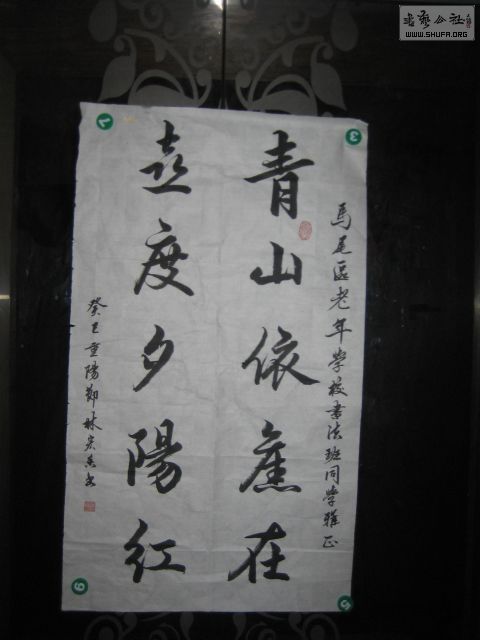 馬尾區老年學校書法班同學雅正
青山依舊在
喜度夕陽紅
癸巳重陽鄭林書
書藝公社
WWW.SHUFA.ORG
7
3
9
5